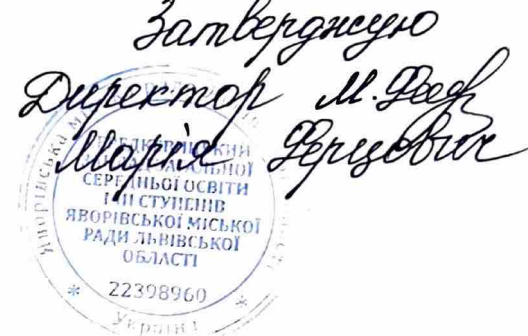 Затверджую
Директор М.
Марія Ферцович
ЗАГАЛЬНОЇ
СЕРЕДНЬОЇ ОСВІТИ
І-ІІ СТУПЕНІВ
ЯВОРІВСЬКОЇ МІСЬКОЇ
РАДИ ЛЬВІВСЬКОЇ
ОБЛАСТІ
* 22398960 *
Україна